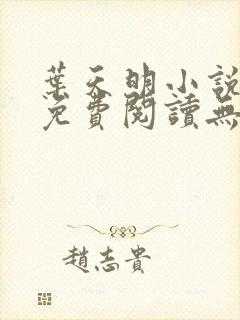 葉天明小說
免費閱讀無
趙志貴